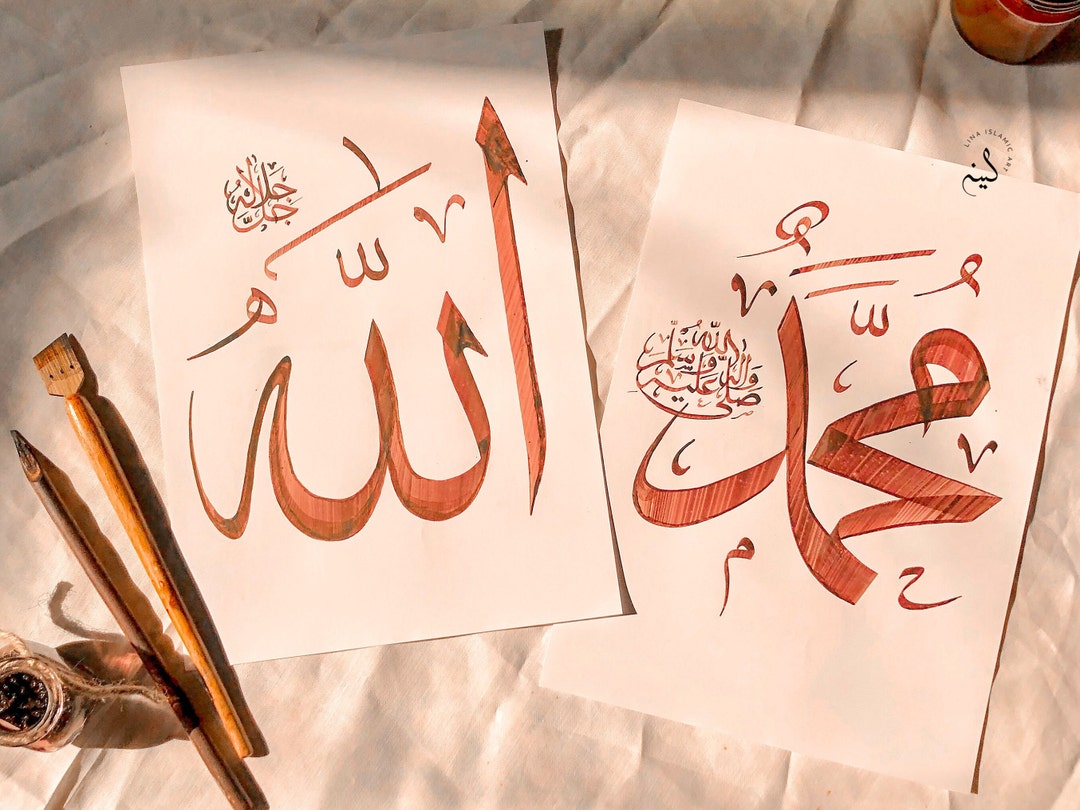 الله
جل جلاله
محمد
صلى الله عليه وآله وسلم
م
ح
LINA ISLAMIC ART
لينه